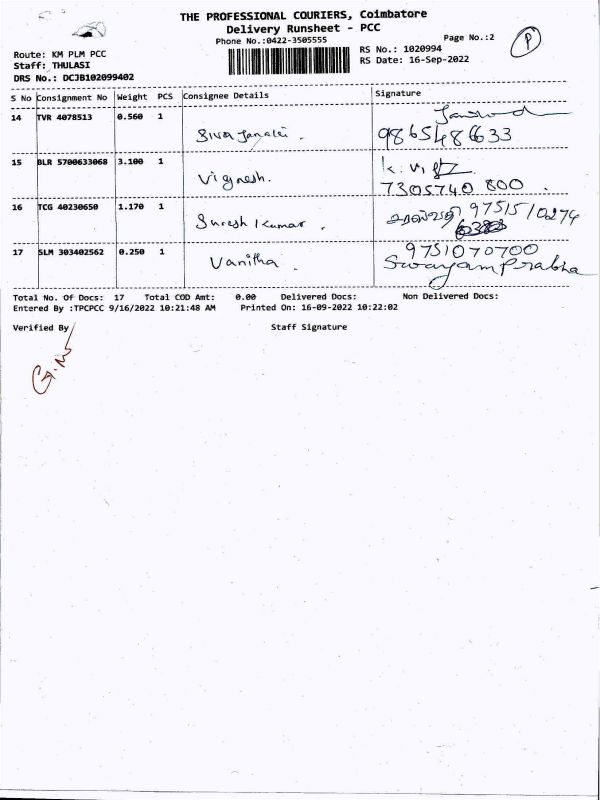 THE PROFESSIONAL COURIERS, Coimbatore
Delivery Runsheet - PCC
Phone No.:0422-3505555
Page No.:2
P
Route: KM PLM PCC
RS No.: 1020994
Staff: THULASI
RS Date: 16-Sep-2022
DRS No.: DCJB102099402
S No Consignment No Weight PCS Consignee Details Signature
14 TVR 4078513 0.560 1
Siva Janaki. 9865486633
15 BLR 5700633068 3.100 1
Vignesh. 7305740 800.
16 TCG 40230650 1.170 1 சரஸ்வதி 9751510274
Suresh Kumar.
17 SLM 303402562 0.250 1 9751070700
Vanitha. Swayam Prabha
Total No. Of Docs: 17 Total COD Amt: 0.00 Delivered Docs: Non Delivered Docs:
Entered By :TPCPCC 9/16/2022 10:21:48 AM Printed On: 16-09-2022 10:22:02
Verified By Staff Signature